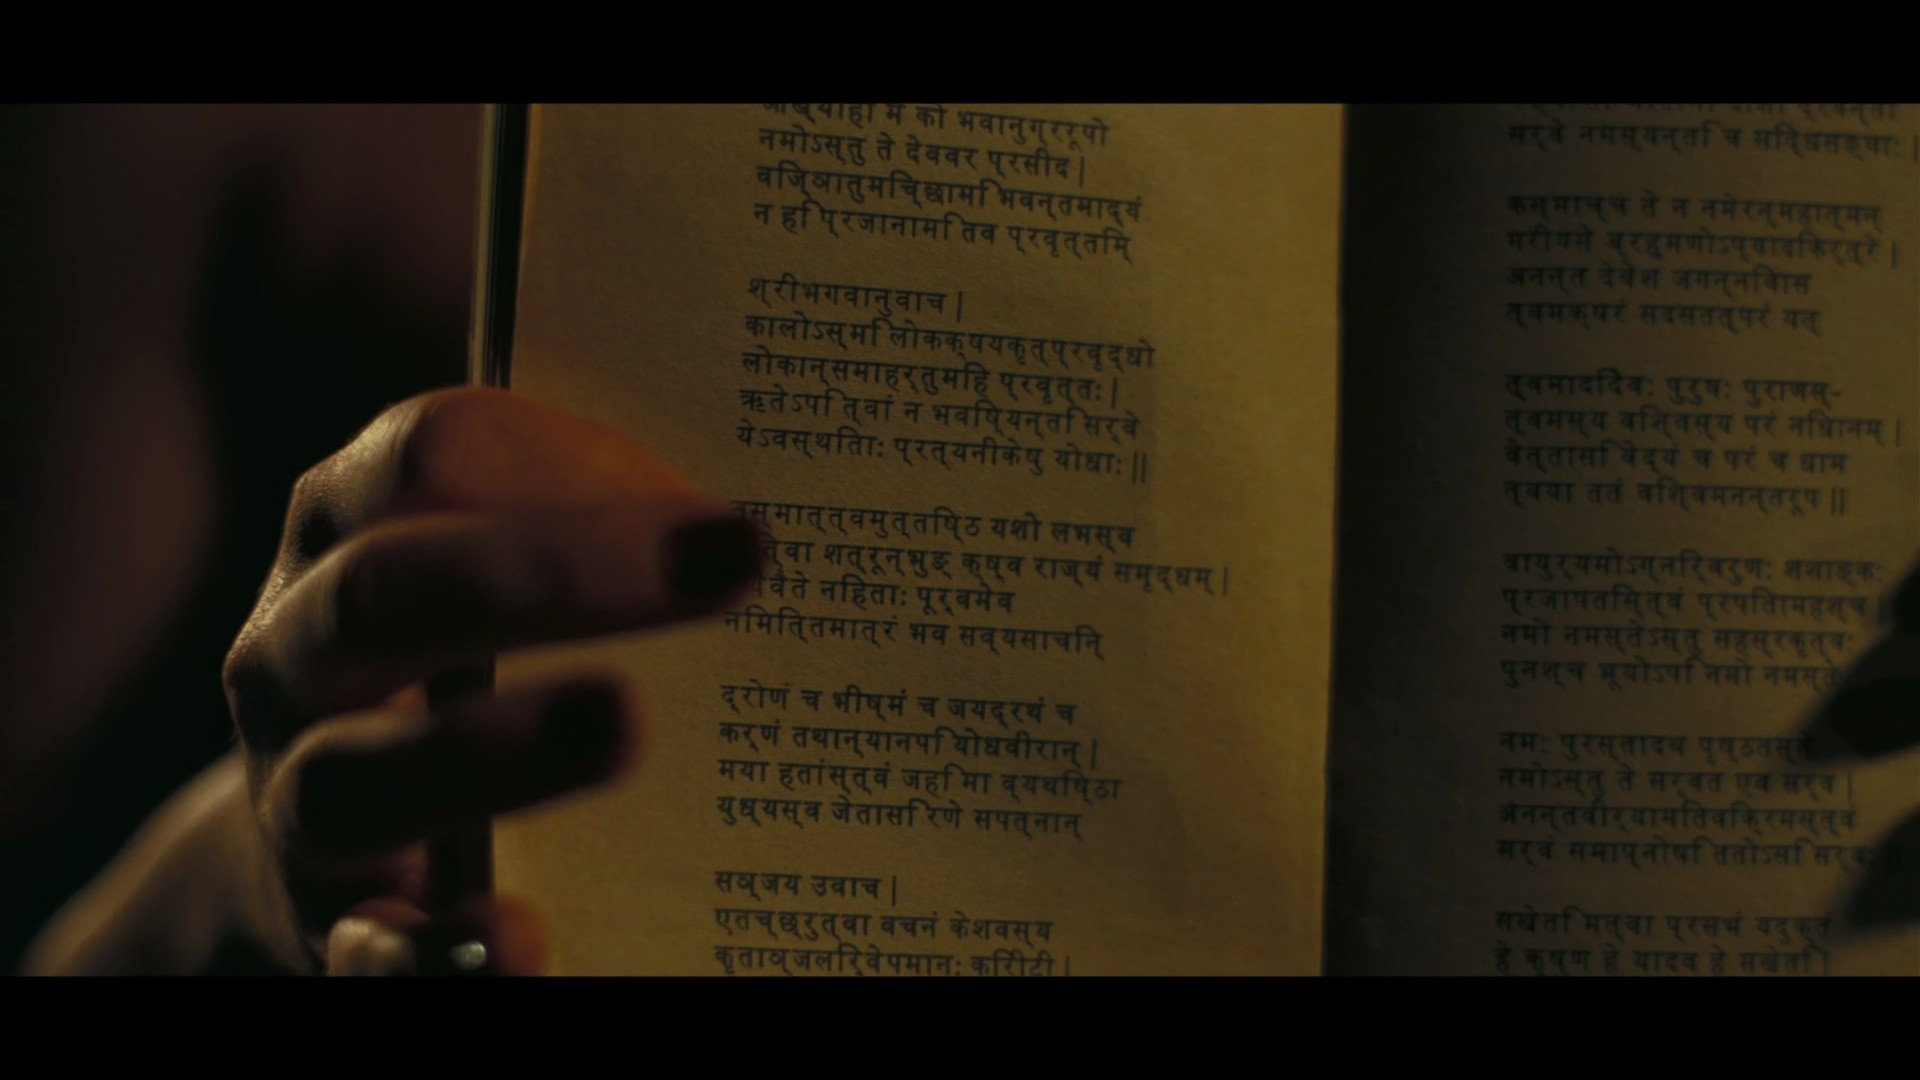 आख्याहि मे को भवानुग्ररूपो
नमोऽस्तु ते देववर प्रसीद |
विज्ञातुमिच्छामि भवन्तमाद्यं
न हि प्रजानामि तव प्रवृत्तिम्
श्रीभगवानुवाच |
कालोऽस्मि लोकक्षयकृत्प्रवृद्धो
लोकान्समाहर्तुमिह प्रवृत्तः |
ऋतेऽपि त्वां न भविष्यन्ति सर्वे
येऽवस्थिताः प्रत्यनीकेषु योधाः ||
तस्मात्त्वमुत्तिष्ठ यशो लभस्व
शत्रून्भुङ्क्ष्व राज्यं समृद्धम् |
निहताः पूर्वमेव
निमित्तमात्रं भव सव्यसाचिन्
द्रोणं च भीष्मं च जयद्रथं च
कर्णं तथान्यानपि योधवीरान् |
मया हतांस्त्वं जहि मा व्यथिष्ठा
युध्यस्व जेतासि रणे सपत्नान्
सञ्जय उवाच |
एतच्छ्रुत्वा वचनं केशवस्य
कृताञ्जलिर्वेपमानः किरीटी |
सर्वे नमस्यन्ति च सिद्धसङ्घाः |
कस्माच्च ते न नमेरन्महात्मन्
गरीयसे ब्रह्मणोऽप्यादिकर्त्रे |
अनन्त देवेश जगन्निवास
त्वमक्षरं सदसत्तत्परं यत्
त्वमादिदेवः पुरुषः पुराणस्-
त्वमस्य विश्वस्य परं निधानम् |
वेत्तासि वेद्यं च परं च धाम
त्वया ततं विश्वमनन्तरूप ||
वायुर्यमोऽग्निर्वरुणः शशाङ्कः
प्रजापतिस्त्वं प्रपितामहश्च
नमो नमस्तेऽस्तु सहस्रकृत्वः
पुनश्च भूयोऽपि नमो नमस्ते
नमः पुरस्तादथ पृष्ठतस्ते
नमोऽस्तु ते सर्वत एव सर्व |
अनन्तवीर्यामितविक्रमस्त्वं
सर्वं समाप्नोषि ततोऽसि सर्वः
सखेति मत्वा प्रसभं यदुक्तं
हे कृष्ण हे यादव हे सखेति |